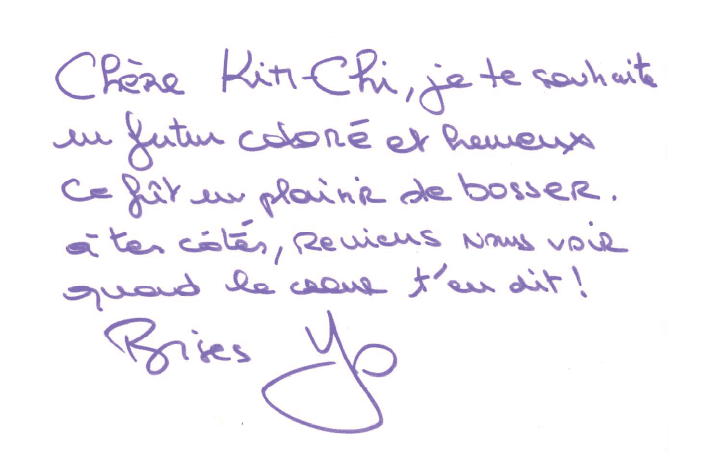 Chère Kim-Chi, je te souhaite
un futur coloré et heureux
Ce fût un plaisir de bosser.
à tes côtés, Reviens nous voir
quand le coeur t'en dit !
Bises Yo